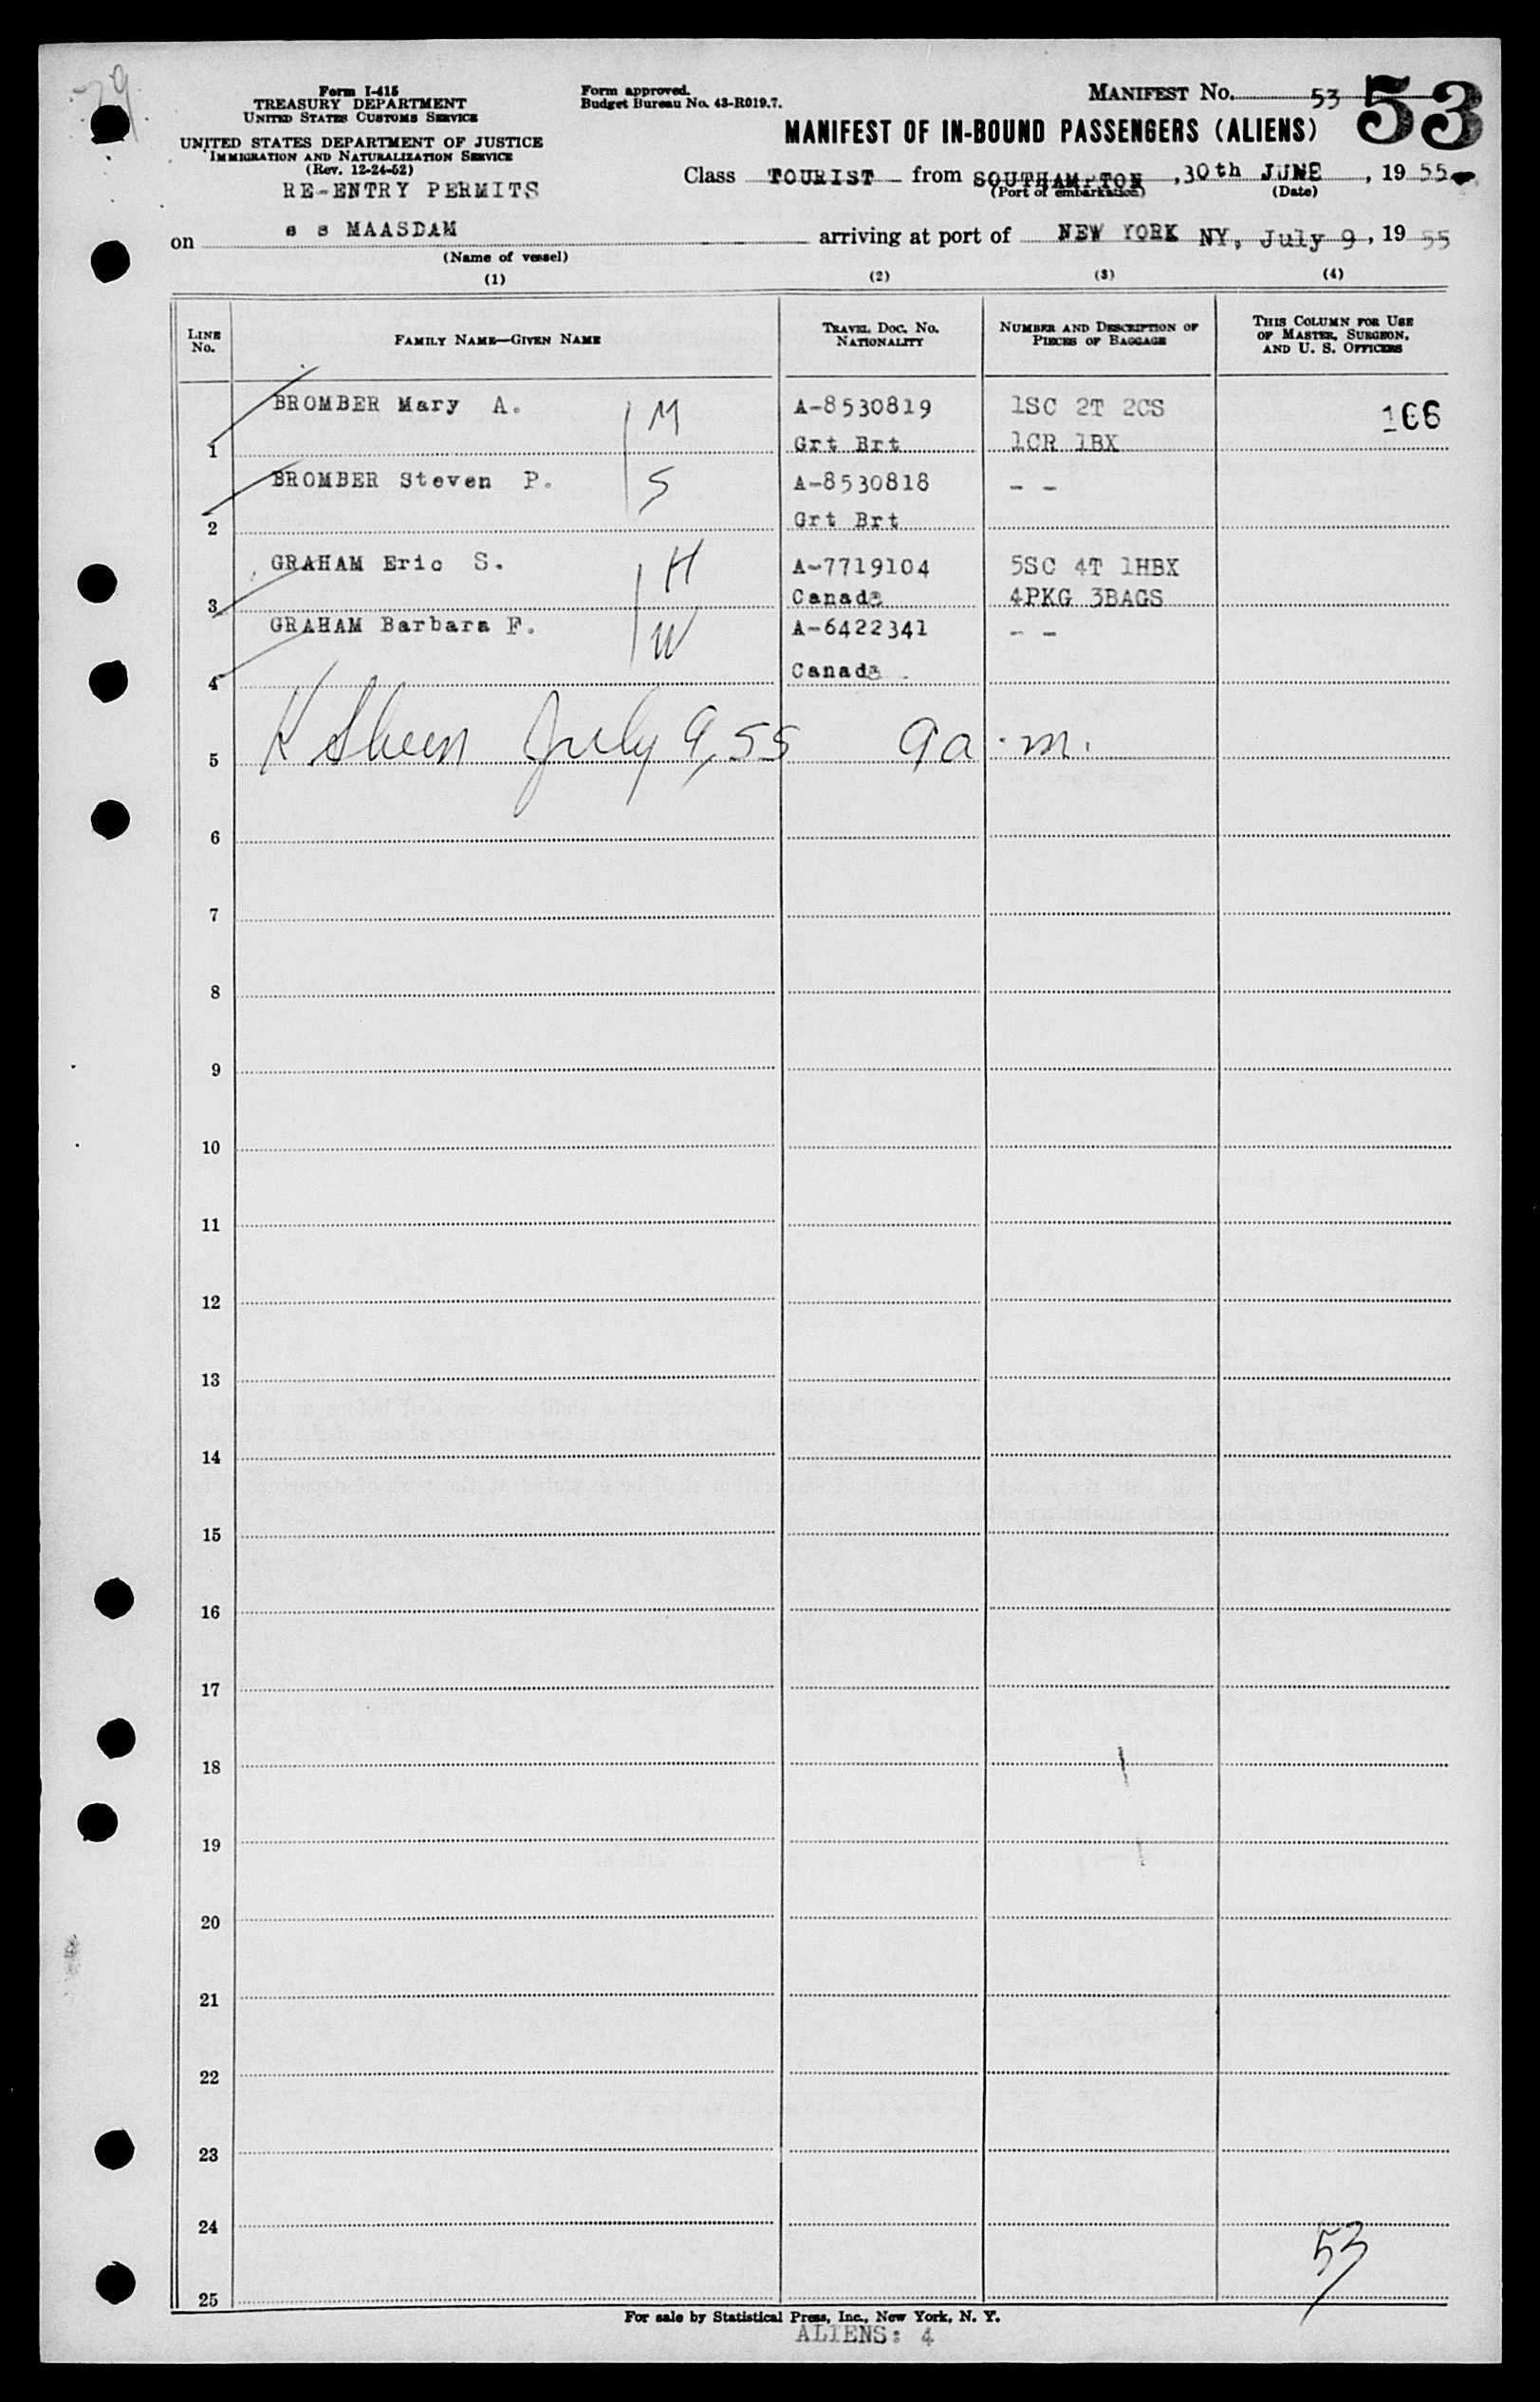 Form I-415
TREASURY DEPARTMENT
UNITED STATES CUSTOMS SERVICE
UNITED STATES DEPARTMENT OF JUSTICE
IMMIGRATION AND NATURALIZATION SERVICE
(Rev. 12-24-52)
RE-ENTRY PERMITS
Form approved.
Budget Bureau No. 43-R019.7.
MANIFEST No. 53 53
MANIFEST OF IN-BOUND PASSENGERS (ALIENS)
Class TOURIST from SOUTHAMPTON, 30th JUNE, 19 55
(Port of embarkation) (Date)
on s s MAASDAM arriving at port of NEW YORK NY, July 9, 19 55
(Name of vessel)
(1) (2) (3) (4)
LINE No. FAMILY NAME—GIVEN NAME TRAVEL DOC. No. NATIONALITY NUMBER AND DESCRIPTION OF PIECES OF BAGGAGE THIS COLUMN FOR USE OF MASTER, SURGEON, AND U. S. OFFICERS
BROMBER Mary A. M A-8530819 1SC 2T 2CS 166
1 Grt Brt 1CR 1BX
BROMBER Steven P. S A-8530818 - -
2 Grt Brt
GRAHAM Eric S. H A-7719104 5SC 4T 1HBX
3 Canada 4PKG 3BAGS
GRAHAM Barbara F. W A-6422341 - -
4 Canada
5 July 9, 55 9 a.m.
6
7
8
9
10
11
12
13
14
15
16
17
18
19
20
21
22
23
24
53
25
For sale by Statistical Press, Inc., New York, N. Y.
ALIENS: 4